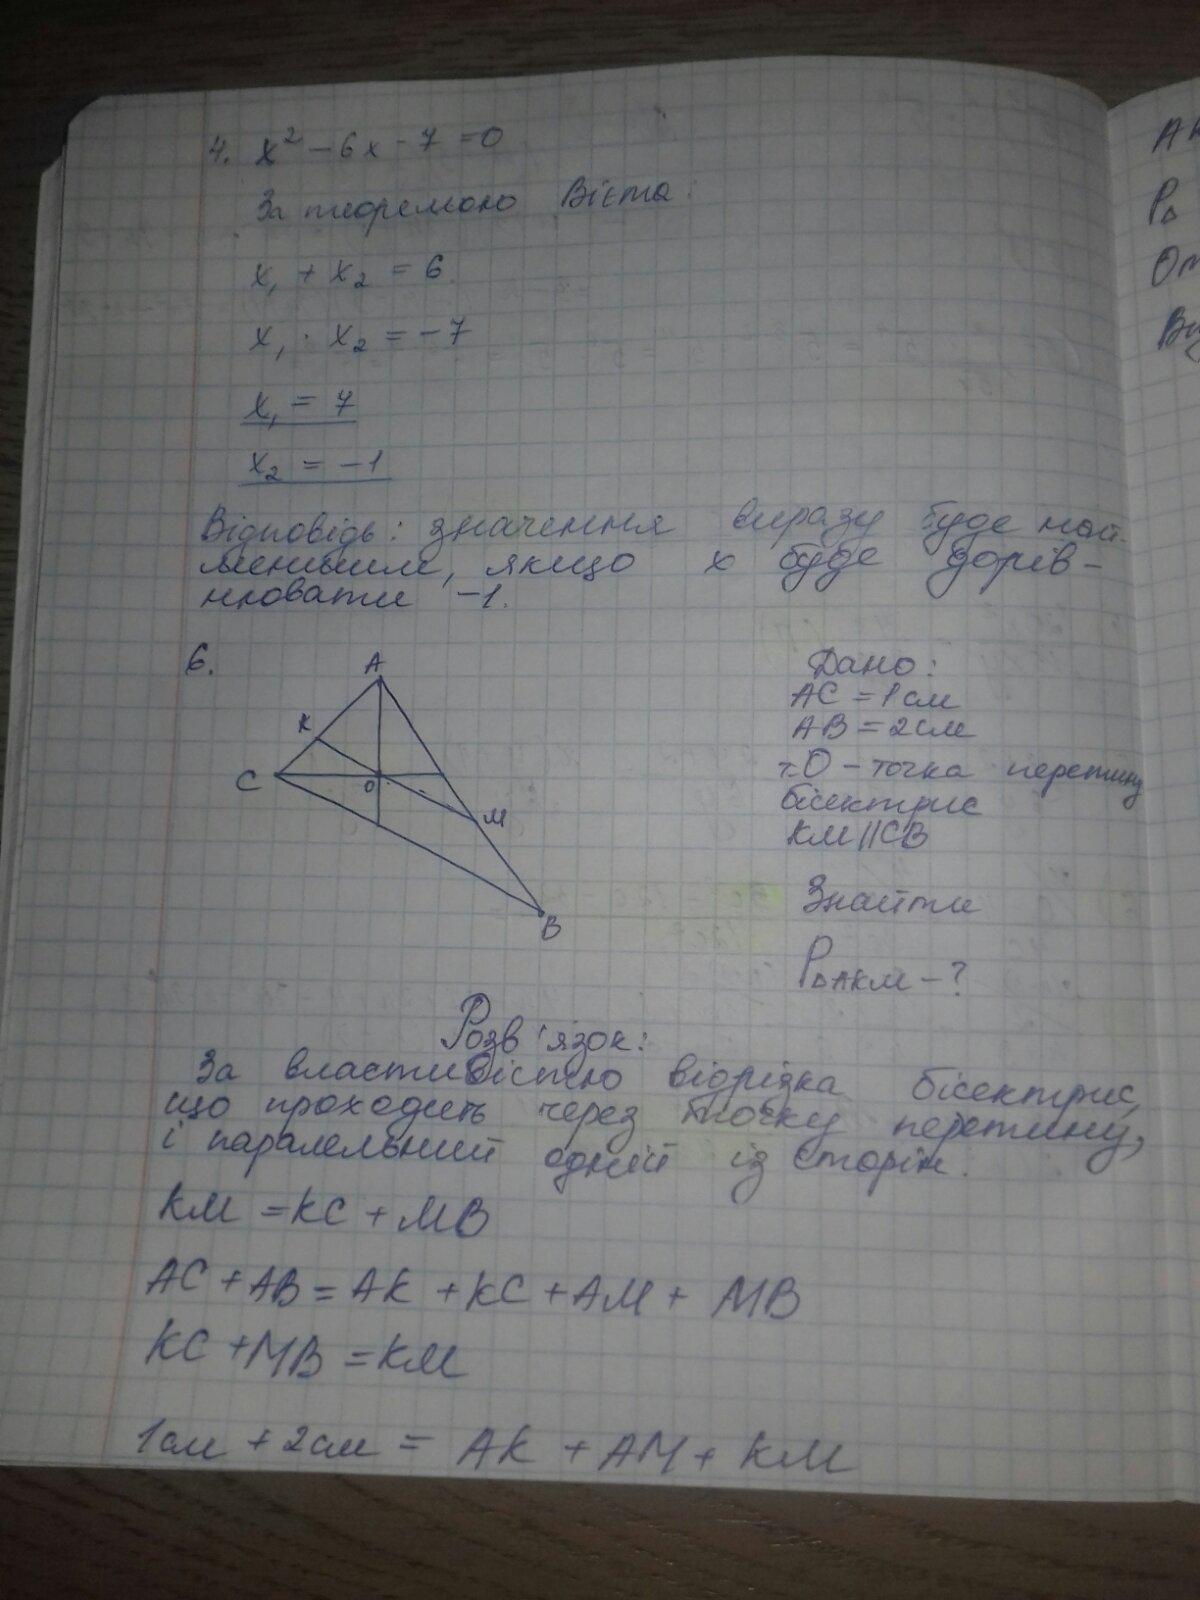 4. x² - 6x - 7 = 0
За теоремою Вієта:
x₁ + x₂ = 6
x₁ · x₂ = -7
x₁ = 7
x₂ = -1
Відповідь: значення виразу буде най-
меншим, якщо x буде дорів-
нювати -1.
6.
A
K
C
O
M
B
Дано:
AC = 1см
AB = 2см
т.О - точка перетину
бісектрис
KM||CB
Знайти
P△AKM - ?
Розв'язок:
За властивістю відрізка бісектрис,
що проходить через точку перетину,
і паралельний одній із сторін.
KM = KC + MB
AC + AB = AK + KC + AM + MB
KC + MB = KM
1см + 2см = AK + AM + KM
P△